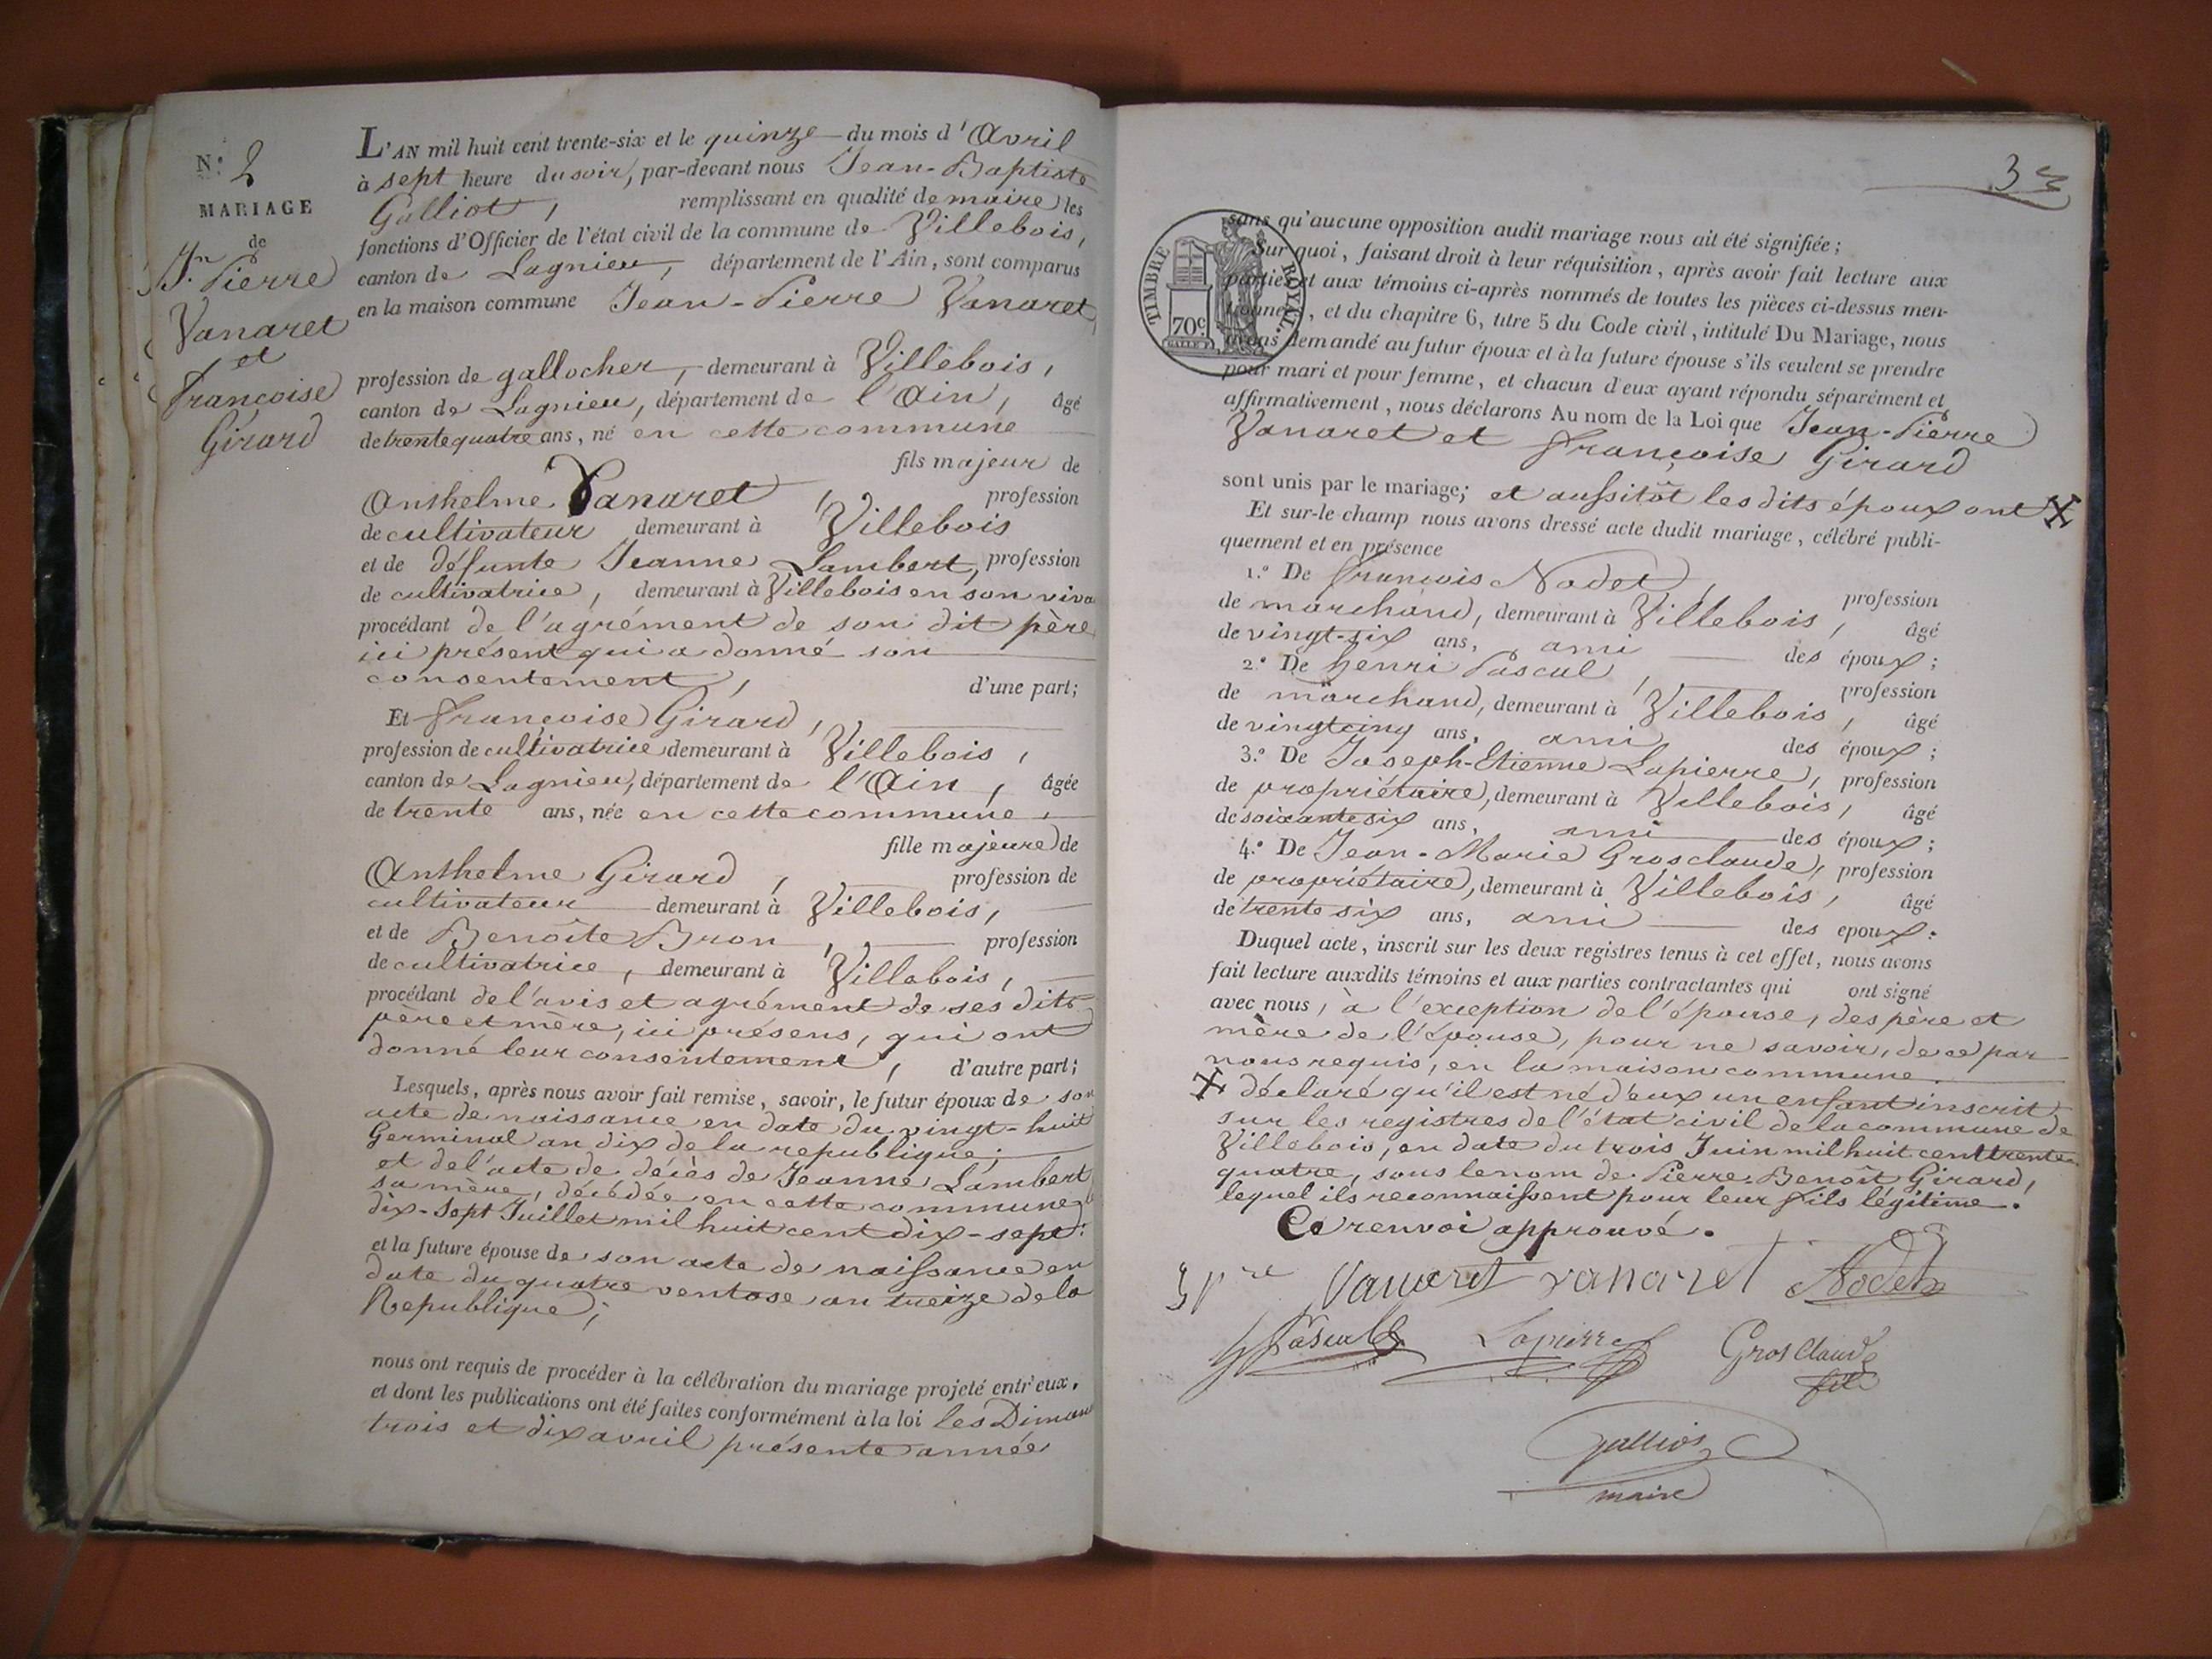 N.° 2
MARIAGE
de
Jn. Pierre
Vanaret
et
Françoise
Girard
L'AN mil huit cent trente-six et le quinze du mois d'Avril
à sept heure du soir, par-devant nous Jean-Baptiste
Galliot, remplissant en qualité de maire les
fonctions d'Officier de l'état civil de la commune de Villebois,
canton de Lagnieu, département de l'Ain, sont comparus
en la maison commune Jean-Pierre Vanaret,
profession de gallocher, demeurant à Villebois,
canton de Lagnieu, département de l'Ain, âgé
de trente quatre ans, né en cette commune
fils majeur de
Anthelme Vanaret, profession
de cultivateur demeurant à Villebois
et de défunte Jeanne Lambert, profession
de cultivatrice, demeurant à Villebois en son viva
procédant de l'agrément de son dit père
ici présent qui a donné son
consentement, d'une part;
Et Françoise Girard,
profession de cultivatrice demeurant à Villebois,
canton de Lagnieu, département de l'Ain, âgée
de trente ans, née en cette commune,
fille majeure de
Anthelme Girard, profession de
cultivateur demeurant à Villebois,
et de Benoîte Bron, profession
de cultivatrice, demeurant à Villebois,
procédant de l'avis et agrément de ses dits
père et mère, ici présens, qui ont
donné leur consentement, d'autre part;
Lesquels, après nous avoir fait remise, savoir, le futur époux de son
acte de naissance en date du vingt-huit
Germinal an dix de la republique;
et de l'acte de décès de Jeanne Lambert
sa mère, décédée en cette commune
dix-sept Juillet mil huit cent dix-sept:
et la future épouse de son acte de naissance en
date du quatre ventose an treize de la
Republique;
nous ont requis de procéder à la célébration du mariage projeté entr'eux,
et dont les publications ont été faites conformément à la loi les Diman
trois et dix avril présente année
3
TIMBRE ROYAL.
70c
sans qu'aucune opposition audit mariage nous ait été signifiée;
Sur quoi, faisant droit à leur réquisition, après avoir fait lecture aux
parties et aux témoins ci-après nommés de toutes les pièces ci-dessus men-
tionnées, et du chapitre 6, titre 5 du Code civil, intitulé Du Mariage, nous
avons demandé au futur époux et à la future épouse s'ils veulent se prendre
pour mari et pour femme, et chacun d'eux ayant répondu séparément et
affirmativement, nous déclarons Au nom de la Loi que Jean-Pierre
Vanaret et Françoise Girard
sont unis par le mariage; et aussitôt les dits époux ont
Et sur-le-champ nous avons dressé acte dudit mariage, célébré publi-
quement et en présence
1.° De François Nodet, profession
de marchand, demeurant à Villebois, âgé
de vingt-six ans, ami des époux;
2.° De henri Pascal, profession
de marchand, demeurant à Villebois, âgé
de vingt cinq ans, ami des époux;
3.° De Joseph-Etienne Lapierre, profession
de propriétaire, demeurant à Villebois, âgé
de soixante six ans, ami des époux;
4.° De Jean-Marie Grosclaude, profession
de propriétaire, demeurant à Villebois, âgé
de trente six ans, ami des epoux.
Duquel acte, inscrit sur les deux registres tenus à cet effet, nous avons
fait lecture auxdits témoins et aux parties contractantes qui ont signé
avec nous, à l'exception de l'épouse, des père et
mère de l'épouse, pour ne savoir, de ce par
nous requis, en la maison commune.
déclaré qu'il est né d'eux un enfant inscrit
sur les registres de l'état civil de la commune de
Villebois, en date du trois Juin mil huit cent trente
quatre, sous le nom de Pierre-Benoit Girard,
lequel ils reconnaissent pour leur fils légitime.
Ce renvoi approuvé.
Vanaret vanaret Nodet
Pascal Lapierre Gros Claude
fils
Galliot
maire